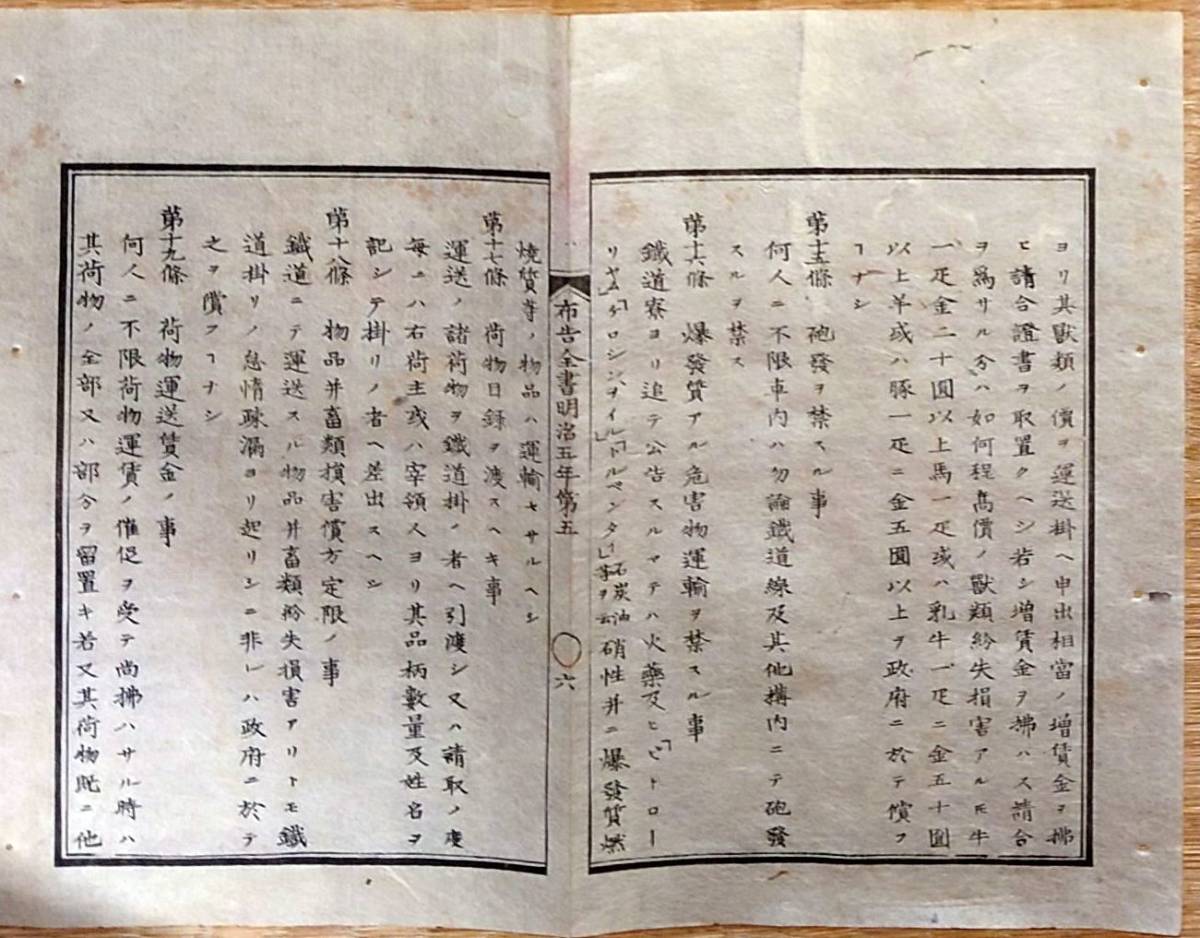 ヨリ其獸類ノ價ヲ運送掛ヘ申出相當ノ増賃金ヲ拂
ヒ請合證書ヲ取置クヘシ若シ増賃金ヲ拂ハス請合
ヲ爲サル分ハ如何程髙價ノ獸類紛失損害アルモ牛
一疋金二十圓以上馬一疋或ハ乳牛一疋ニ金五十圓
以上羊或ハ豚一疋ニ金五圓以上ヲ政府ニ於テ償フ
ヿナシ
第十五條　砲發ヲ禁スル事
何人ニ不限車内ハ勿論鐵道線及其他構内ニテ砲發
スルヲ禁ス
第十六條　爆發質アル危害物運輸ヲ禁スル事
鐵道寮ヨリ追テ公告スルマテハ火藥及ヒ「ビトロー
リヤム」「ケロシンヲイル」「トルペンタイ」石炭油等ヲ云硝性并ニ爆發質燃
布告全書明治五年第五　〇六
燒質等ノ物品ハ運輸セサルヘシ
第十七條　荷物目録ヲ渡スヘキ事
運送ノ諸荷物ヲ鐵道掛ノ者ヘ引渡シ又ハ請取ノ度
毎ニハ右荷主或ハ宰領人ヨリ其品柄數量及姓名ヲ
記シテ掛リノ者ヘ差出スヘシ
第十八條　物品并畜類損害償方定限ノ事
鐵道ニテ運送スル物品并畜類紛失損害アリトモ鐵
道掛リノ怠惰疎漏ヨリ起リシニ非レハ政府ニ於テ
之ヲ償フヿナシ
第十九條　荷物運送賃金ノ事
何人ニ不限荷物運賃ノ催促ヲ受テ尚拂ハサル時ハ
其荷物ノ全部又ハ部分ヲ留置キ若又其荷物既ニ他